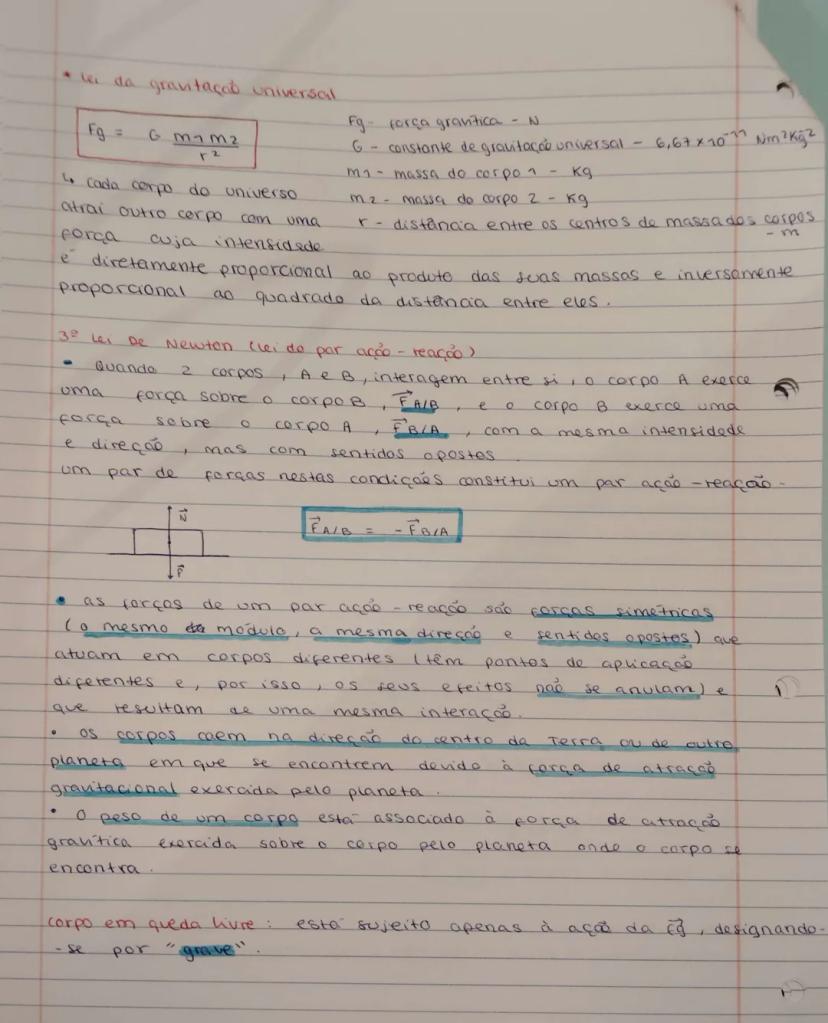 • Lei da gravitação universal
Fg = G m1 m2 / r²
Fg - força gravítica - N
G - constante de gravitação universal - 6,67 x 10⁻¹¹ Nm²Kg⁻²
m1 - massa do corpo 1 - Kg
m2 - massa do corpo 2 - Kg
r - distância entre os centros de massa dos corpos
- m
↳ cada corpo do universo
atrai outro corpo com uma
força cuja intensidade
é diretamente proporcional ao produto das suas massas e inversamente
proporcional ao quadrado da distância entre eles.
3ª Lei De Newton (Lei do par ação-reação)
- Quando 2 corpos, A e B, interagem entre si, o corpo A exerce
uma força sobre o corpo B, F⃗A/B, e o corpo B exerce uma
força sobre o corpo A, F⃗B/A, com a mesma intensidade
e direção, mas com sentidos opostos.
um par de forças nestas condições constitui um par ação-reação.
N⃗
F⃗
F⃗A/B = - F⃗B/A
• as forças de um par ação-reação são forças simétricas
(o mesmo módulo, a mesma direção e sentidos opostos) que
atuam em corpos diferentes (têm pontos de aplicação
diferentes e, por isso, os seus efeitos não se anulam) e
que resultam de uma mesma interação.
• os corpos caem na direção do centro da Terra ou de outro
planeta em que se encontrem devido à força de atração
gravitacional exercida pelo planeta.
• O peso de um corpo está associado à força de atração
gravítica exercida sobre o corpo pelo planeta onde o corpo se
encontra.
corpo em queda livre: está sujeito apenas à ação da F⃗g, designando-
-se por "grave".